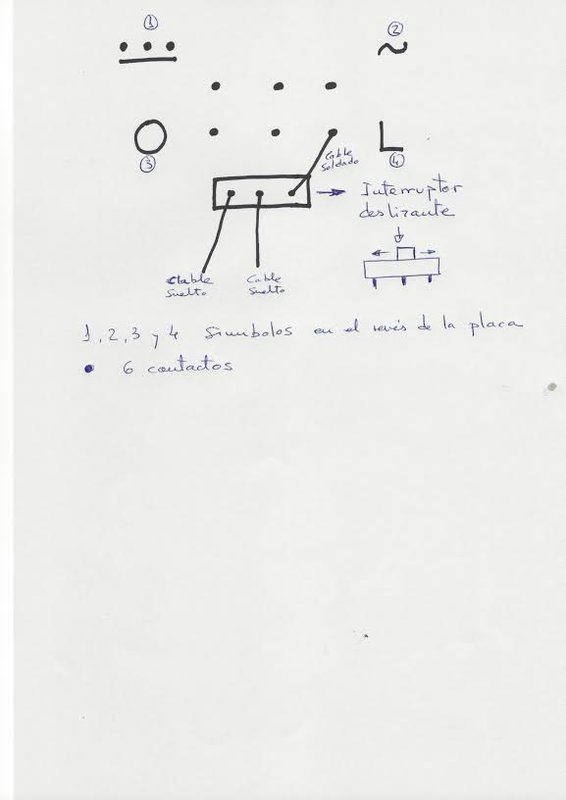 1
2
L
3
4
Cable
Soldado
Interruptor
deslizante
Cable
Suelto
Cable
Suelto
1, 2, 3 y 4 Simbolos en el revés de la placa
• 6 contactos